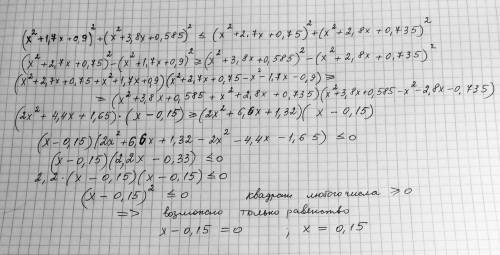 (x²+1,7x+0,9)²+(x²+3,8x+0,585)² ≤ (x²+2,7x+0,75)²+(x²+2,8x+0,735)²
(x²+2,7x+0,75)²-(x²+1,7x+0,9)² ≥ (x²+3,8x+0,585)²-(x²+2,8x+0,735)²
(x²+2,7x+0,75+x²+1,7x+0,9)(x²+2,7x+0,75-x²-1,7x-0,9) ≥
≥ (x²+3,8x+0,585+x²+2,8x+0,735)(x²+3,8x+0,585-x²-2,8x-0,735)
(2x²+4,4x+1,65)·(x-0,15) ≥ (2x²+6,6x+1,32)(x-0,15)
(x-0,15)(2x²+6,6x+1,32-2x²-4,4x-1,65) ≤0
(x-0,15)(2,2x-0,33) ≤0
2,2·(x-0,15)(x-0,15) ≤0
(x-0,15)² ≤0 квадрат любого числа ≥0
=> возможно только равенство
x-0,15=0 ; x=0,15